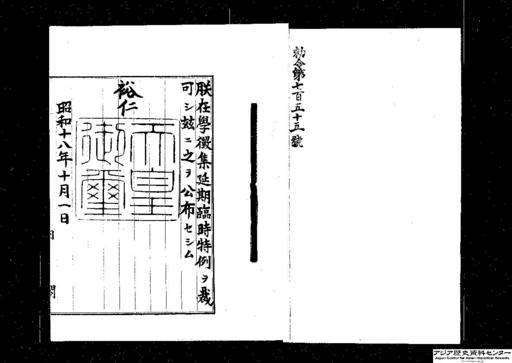 勅令第七百五十五號
朕在學徵集延期臨時特例ヲ裁
可シ玆ニ之ヲ公布セシム
裕仁
天皇
御璽
昭和十八年十月一日
アジア歴史資料センター
Japan Center for Asian Historical Records